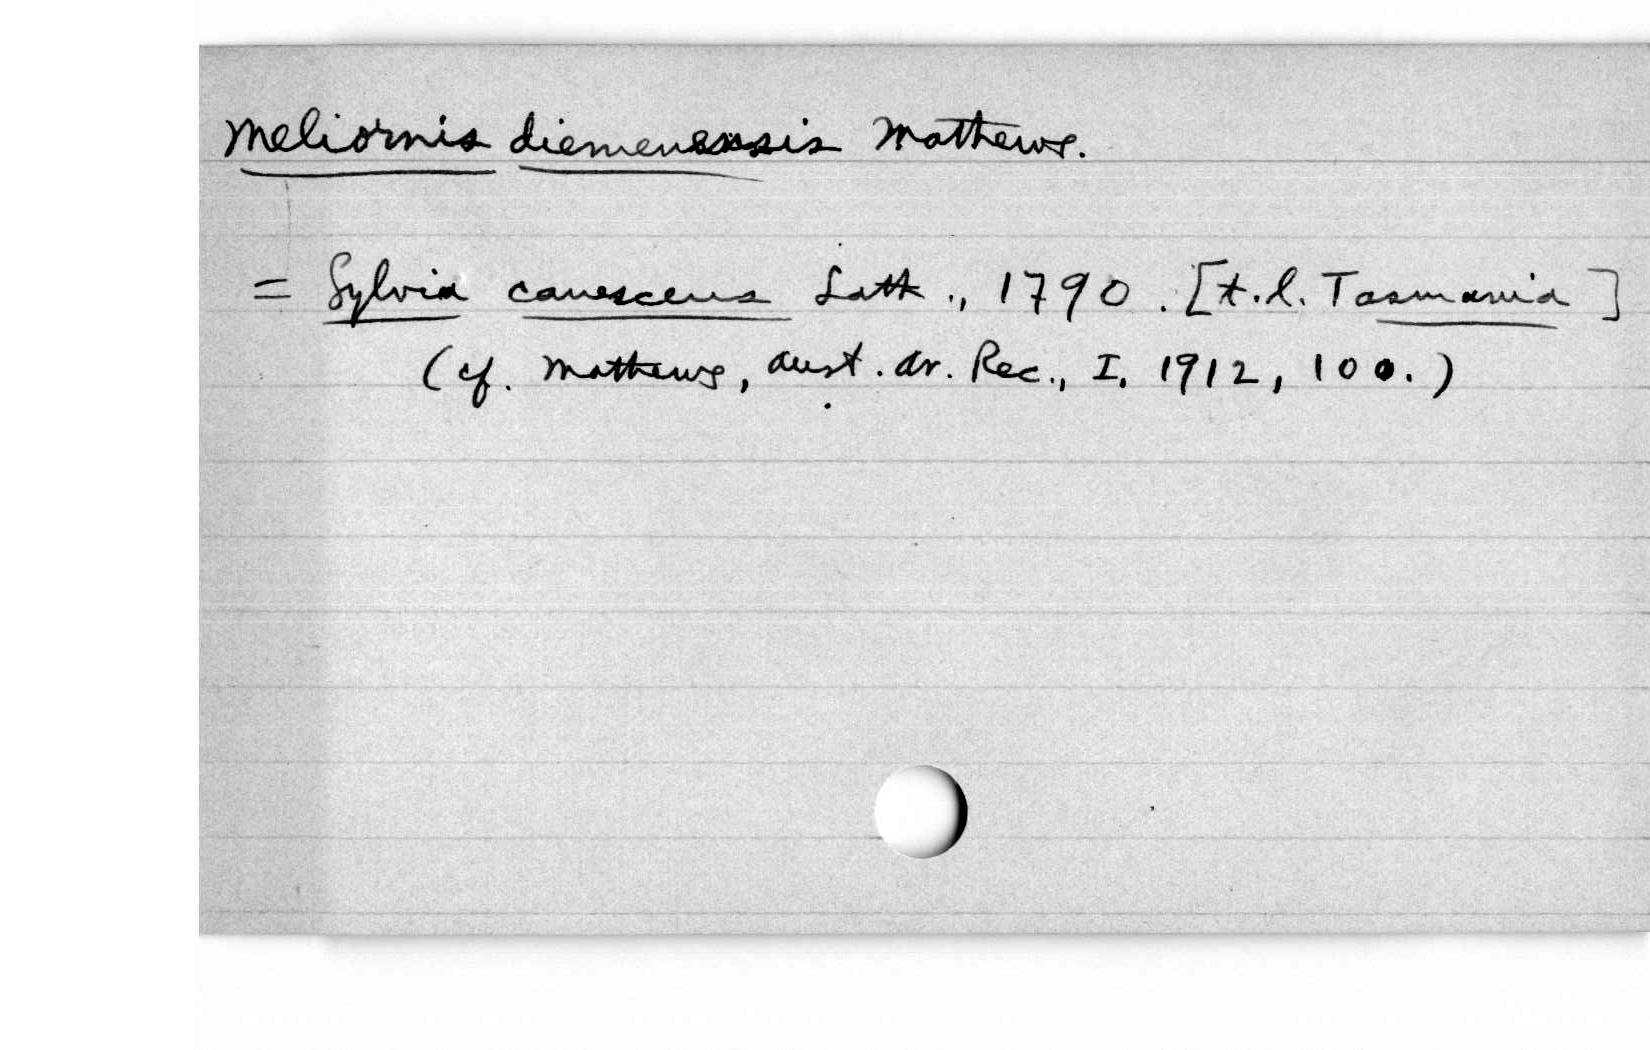 Meliornis diemenensis Mathews.
= Sylvia canescens Lath., 1790. [t.l. Tasmania]
(cf. Mathews, Aust. Av. Rec., I, 1912, 100.)